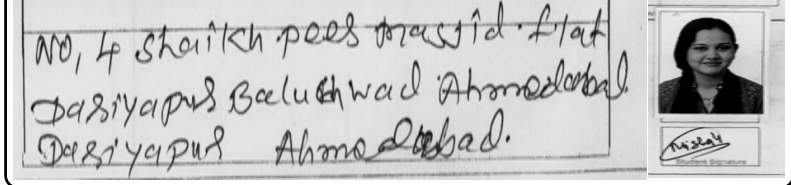 NO, 4 Shaikh peer masjid. flat
Dariyapur Baluchwad Ahmedabad.
Dariyapur Ahmedabad.
Student Signature